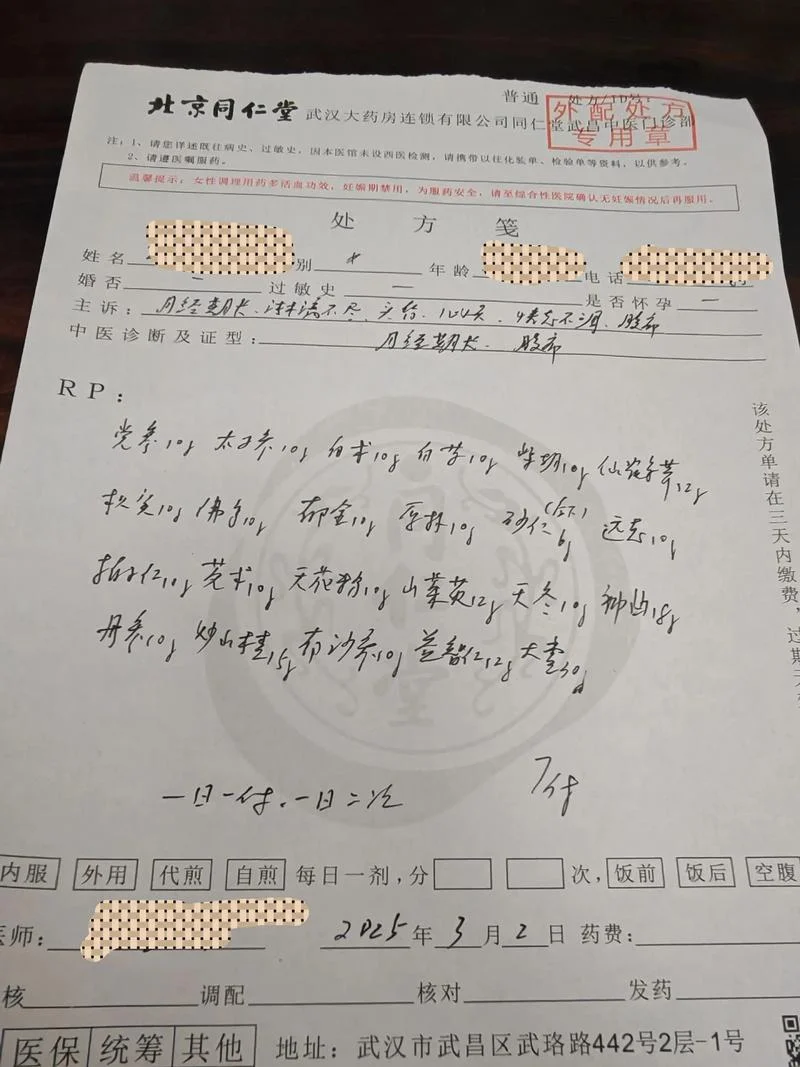 北京同仁堂 武汉大药房连锁有限公司同仁堂武昌中医门诊部
普通 处方/ID号:
外配处方
专用章
注:1、请您详述既往病史、过敏史,因本医馆未设西医检测,请携带以往化验单、检验单等资料,以供参考。
2、请遵医嘱服药。
温馨提示:女性调理用药多活血功效,妊娠期禁用,为服药安全,请至综合性医院确认无妊娠情况后再服用。
处方笺
姓名 别 年龄 电话
婚否 过敏史 一 是否怀孕 一
主诉:月经期长、淋漓不尽、 情志不调、
中医诊断及证型:月经期长、
RP:
党参10g 太子参10g 白术10g 白芍10g 柴胡10g 12g
枳实10g 佛手10g 郁金10g 厚朴10g 砂仁(后下)6g 远志10g
柏子仁10g 莪术10g 天花粉10g 山茱萸12g 天冬10g 神曲18g
丹参10g 炒山楂15g 南沙参10g 益智仁12g 大枣30g
一日一付、一日二次 7付
内服 外用 代煎 自煎 每日一剂,分 次, 饭前 饭后 空腹
医师: 2025年3月2日 药费:
核 调配 核对 发药
医保 统筹 其他 地址:武汉市武昌区武珞路442号2层-1号
该处方单请在三天内缴费,过期